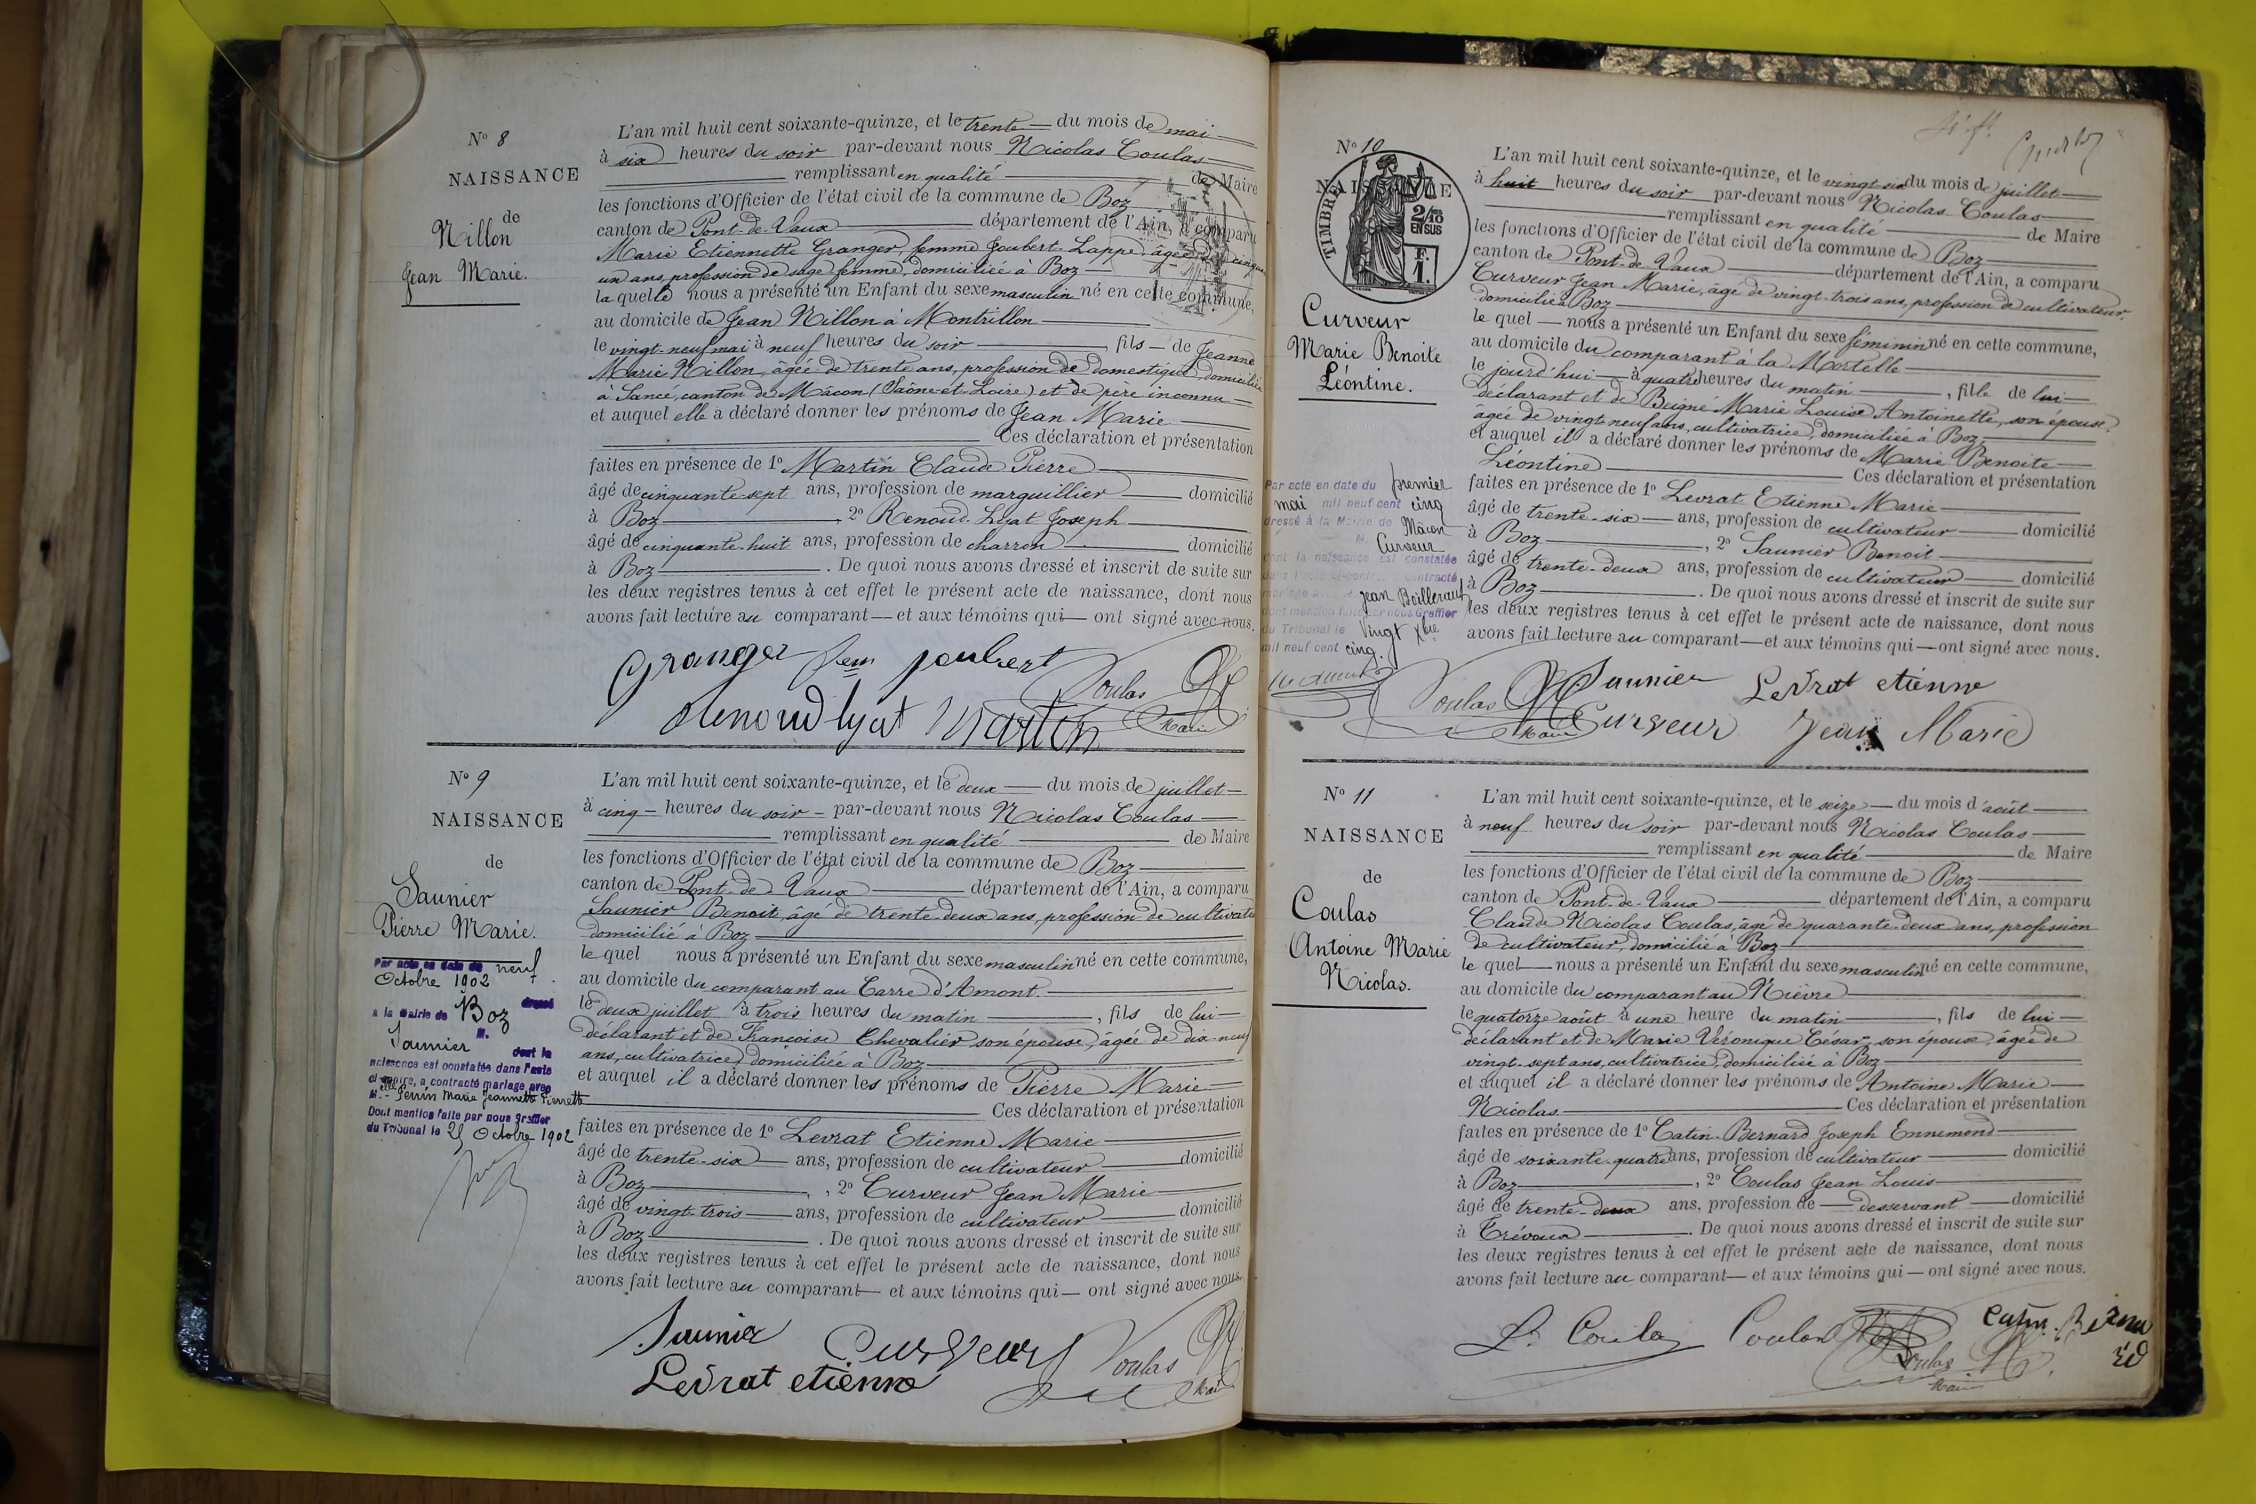 N° 8
NAISSANCE
de
Nillon
Jean Marie.
L'an mil huit cent soixante-quinze, et le trente du mois de mai
à six heures du soir par-devant nous Nicolas Coulas
remplissant en qualité de Maire
les fonctions d'Officier de l'état civil de la commune de Boz
canton de Pont-de-Vaux département de l'Ain, a comparu
Marie Etiennette Granger, femme Joubert Lappe, âgée de cinquante
un ans, profession de sage femme, domiciliée à Boz
la quelle nous a présenté un Enfant du sexe masculin né en cette commune,
au domicile de Jean Nillon à Montrillon
le vingt-neuf mai à neuf heures du soir, fils de Jeanne
Marie Nillon, âgée de trente ans, profession de domestique, domiciliée
à Sancé, canton de Mâcon (Saône-et-Loire) et de père inconnu
et auquel elle a déclaré donner les prénoms de Jean Marie
Ces déclaration et présentation
faites en présence de 1° Martin Claude Pierre
âgé de cinquante-sept ans, profession de marguillier domicilié
à Boz, 2° Renoud-Lyat Joseph
âgé de cinquante-huit ans, profession de charron domicilié
à Boz. De quoi nous avons dressé et inscrit de suite sur
les deux registres tenus à cet effet le présent acte de naissance, dont nous
avons fait lecture au comparant et aux témoins qui ont signé avec nous.
Granger fem joubert
Coulas
Renoud lyat Martin
Maire
N° 9
NAISSANCE
de
Saunier
Pierre Marie.
Par acte en date du neuf
Octobre 1902 dressé
à la Mairie de Boz
M.
Saunier dont la
naissance est constatée dans l'acte
ci-contre, a contracté mariage avec
M.elle Perrin Marie Jeannette Pierrette
Dont mention faite par nous greffier
du Tribunal le 25 Octobre 1902
L'an mil huit cent soixante-quinze, et le deux du mois de juillet
à cinq heures du soir par-devant nous Nicolas Coulas
remplissant en qualité de Maire
les fonctions d'Officier de l'état civil de la commune de Boz
canton de Pont-de-Vaux département de l'Ain, a comparu
Saunier Benoit, âgé de trente-deux ans, profession de cultivateur
domicilié à Boz
le quel nous a présenté un Enfant du sexe masculin né en cette commune,
au domicile du comparant au Carre d'Amont.
le deux juillet à trois heures du matin, fils de lui
déclarant et de Françoise Chevalier son épouse, âgée de dix-neuf
ans, cultivatrice, domiciliée à Boz
et auquel il a déclaré donner les prénoms de Pierre Marie
Ces déclaration et présentation
faites en présence de 1° Levrat Etienne Marie
âgé de trente-six ans, profession de cultivateur domicilié
à Boz, 2° Curveur Jean Marie
âgé de vingt-trois ans, profession de cultivateur domicilié
à Boz. De quoi nous avons dressé et inscrit de suite sur
les deux registres tenus à cet effet le présent acte de naissance, dont nous
avons fait lecture au comparant et aux témoins qui ont signé avec nous.
Saunier Curveur Coulas
Levrat etienne
N° 10
NAISSANCE
TIMBRE
2/10 EN SUS
F. 1.
Curveur
Marie Benoite
Léontine.
Par acte en date du premier
mai mil neuf cent cinq
dressé à la Mairie de Mâcon
M. Curveur
dont la naissance est constatée
dans l'acte ci-contre, a contracté
mariage avec Jean
dont mention faite par nous Greffier
du Tribunal le Vingt Xbre
mil neuf cent cinq.
L'an mil huit cent soixante-quinze, et le vingt-six du mois de juillet
à huit heures du soir par-devant nous Nicolas Coulas
remplissant en qualité de Maire
les fonctions d'Officier de l'état civil de la commune de Boz
canton de Pont-de-Vaux département de l'Ain, a comparu
Curveur Jean Marie, âgé de vingt-trois ans, profession de cultivateur,
domicilié à Boz
le quel nous a présenté un Enfant du sexe féminin né en cette commune,
au domicile du comparant à la Mortelle
le jourd'hui à quatre heures du matin, fille de lui
déclarant et de Beigné Marie Louise Antoinette, son épouse,
âgée de vingt-neuf ans, cultivatrice, domiciliée à Boz
et auquel il a déclaré donner les prénoms de Marie Benoite
Léontine Ces déclaration et présentation
faites en présence de 1° Levrat Etienne Marie
âgé de trente-six ans, profession de cultivateur domicilié
à Boz, 2° Saunier Benoit
âgé de trente-deux ans, profession de cultivateur domicilié
à Boz. De quoi nous avons dressé et inscrit de suite sur
les deux registres tenus à cet effet le présent acte de naissance, dont nous
avons fait lecture au comparant et aux témoins qui ont signé avec nous.
Coulas Saunier Levrat etienne
Maire Curveur Jean Marie
N° 11
NAISSANCE
de
Coulas
Antoine Marie
Nicolas.
L'an mil huit cent soixante-quinze, et le seize du mois d'août
à neuf heures du soir par-devant nous Nicolas Coulas
remplissant en qualité de Maire
les fonctions d'Officier de l'état civil de la commune de Boz
canton de Pont-de-Vaux département de l'Ain, a comparu
Claude Nicolas Coulas, âgé de quarante-deux ans, profession
de cultivateur, domicilié à Boz
le quel nous a présenté un Enfant du sexe masculin né en cette commune,
au domicile du comparant au Nièvre
le quatorze août à une heure du matin, fils de lui
déclarant et de Marie Véronique César, son épouse, âgée de
vingt-sept ans, cultivatrice, domiciliée à Boz
et auquel il a déclaré donner les prénoms de Antoine Marie
Nicolas Ces déclaration et présentation
faites en présence de 1° Catin-Bernard Joseph Ennemond
âgé de soixante-quatre ans, profession de cultivateur domicilié
à Boz, 2° Coulas Jean Louis
âgé de trente-deux ans, profession de desservant domicilié
à Trévoux. De quoi nous avons dressé et inscrit de suite sur
les deux registres tenus à cet effet le présent acte de naissance, dont nous
avons fait lecture au comparant et aux témoins qui ont signé avec nous.
Coulas
Coulas
Maire